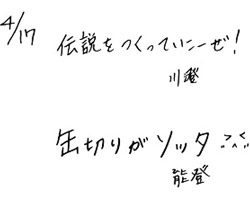 4/17
伝説をつくっていこーぜ!
川澄
缶切りがソッタ
能登